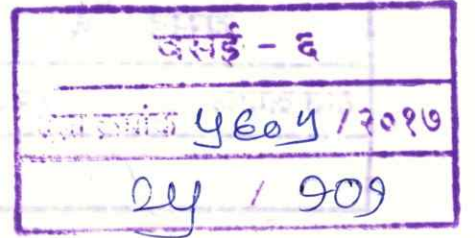 वसई - ६
क्रमांक ५६०५ / २०१७
२५ / १०१